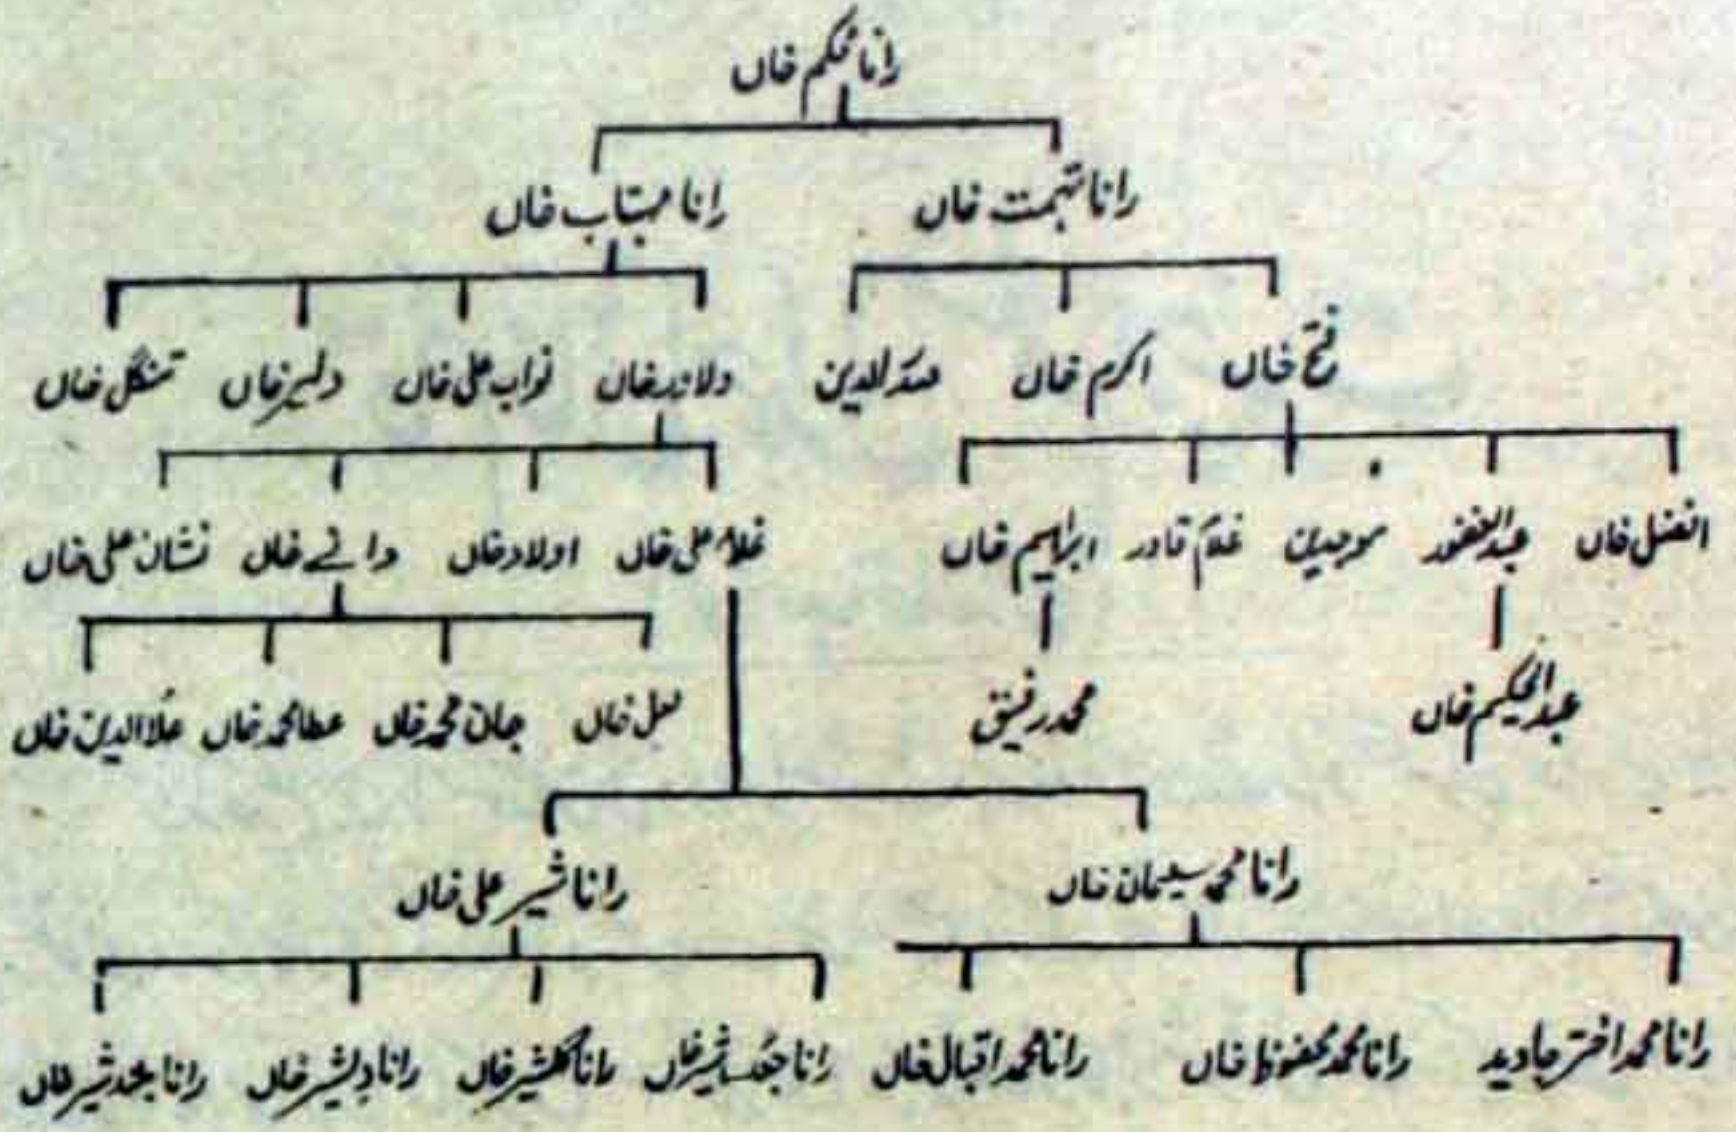 رانا محکم خاں
رانا ہمت خاں رانا مہتاب خاں
فتح خاں اکرم خاں صدرالدین دلاور خاں نواب علی خاں دلیر خاں منگل خاں
افضل خاں عبدالغفور موجدین غلام قادر ابراہیم خاں غلام علی خاں اولاد خاں دانے خاں نشان علی خاں
عبدالحکیم خاں محمد رفیق لعل خاں جان محمد خاں عطا محمد خاں علاالدین خاں
رانا محمد سلیمان خاں رانا شیر علی خاں
رانا محمد اختر جاوید رانا محمد محفوظ خاں رانا محمد اقبال خاں رانا شیر خاں رانا شیر خاں رانا شیر خاں رانا شیر خاں